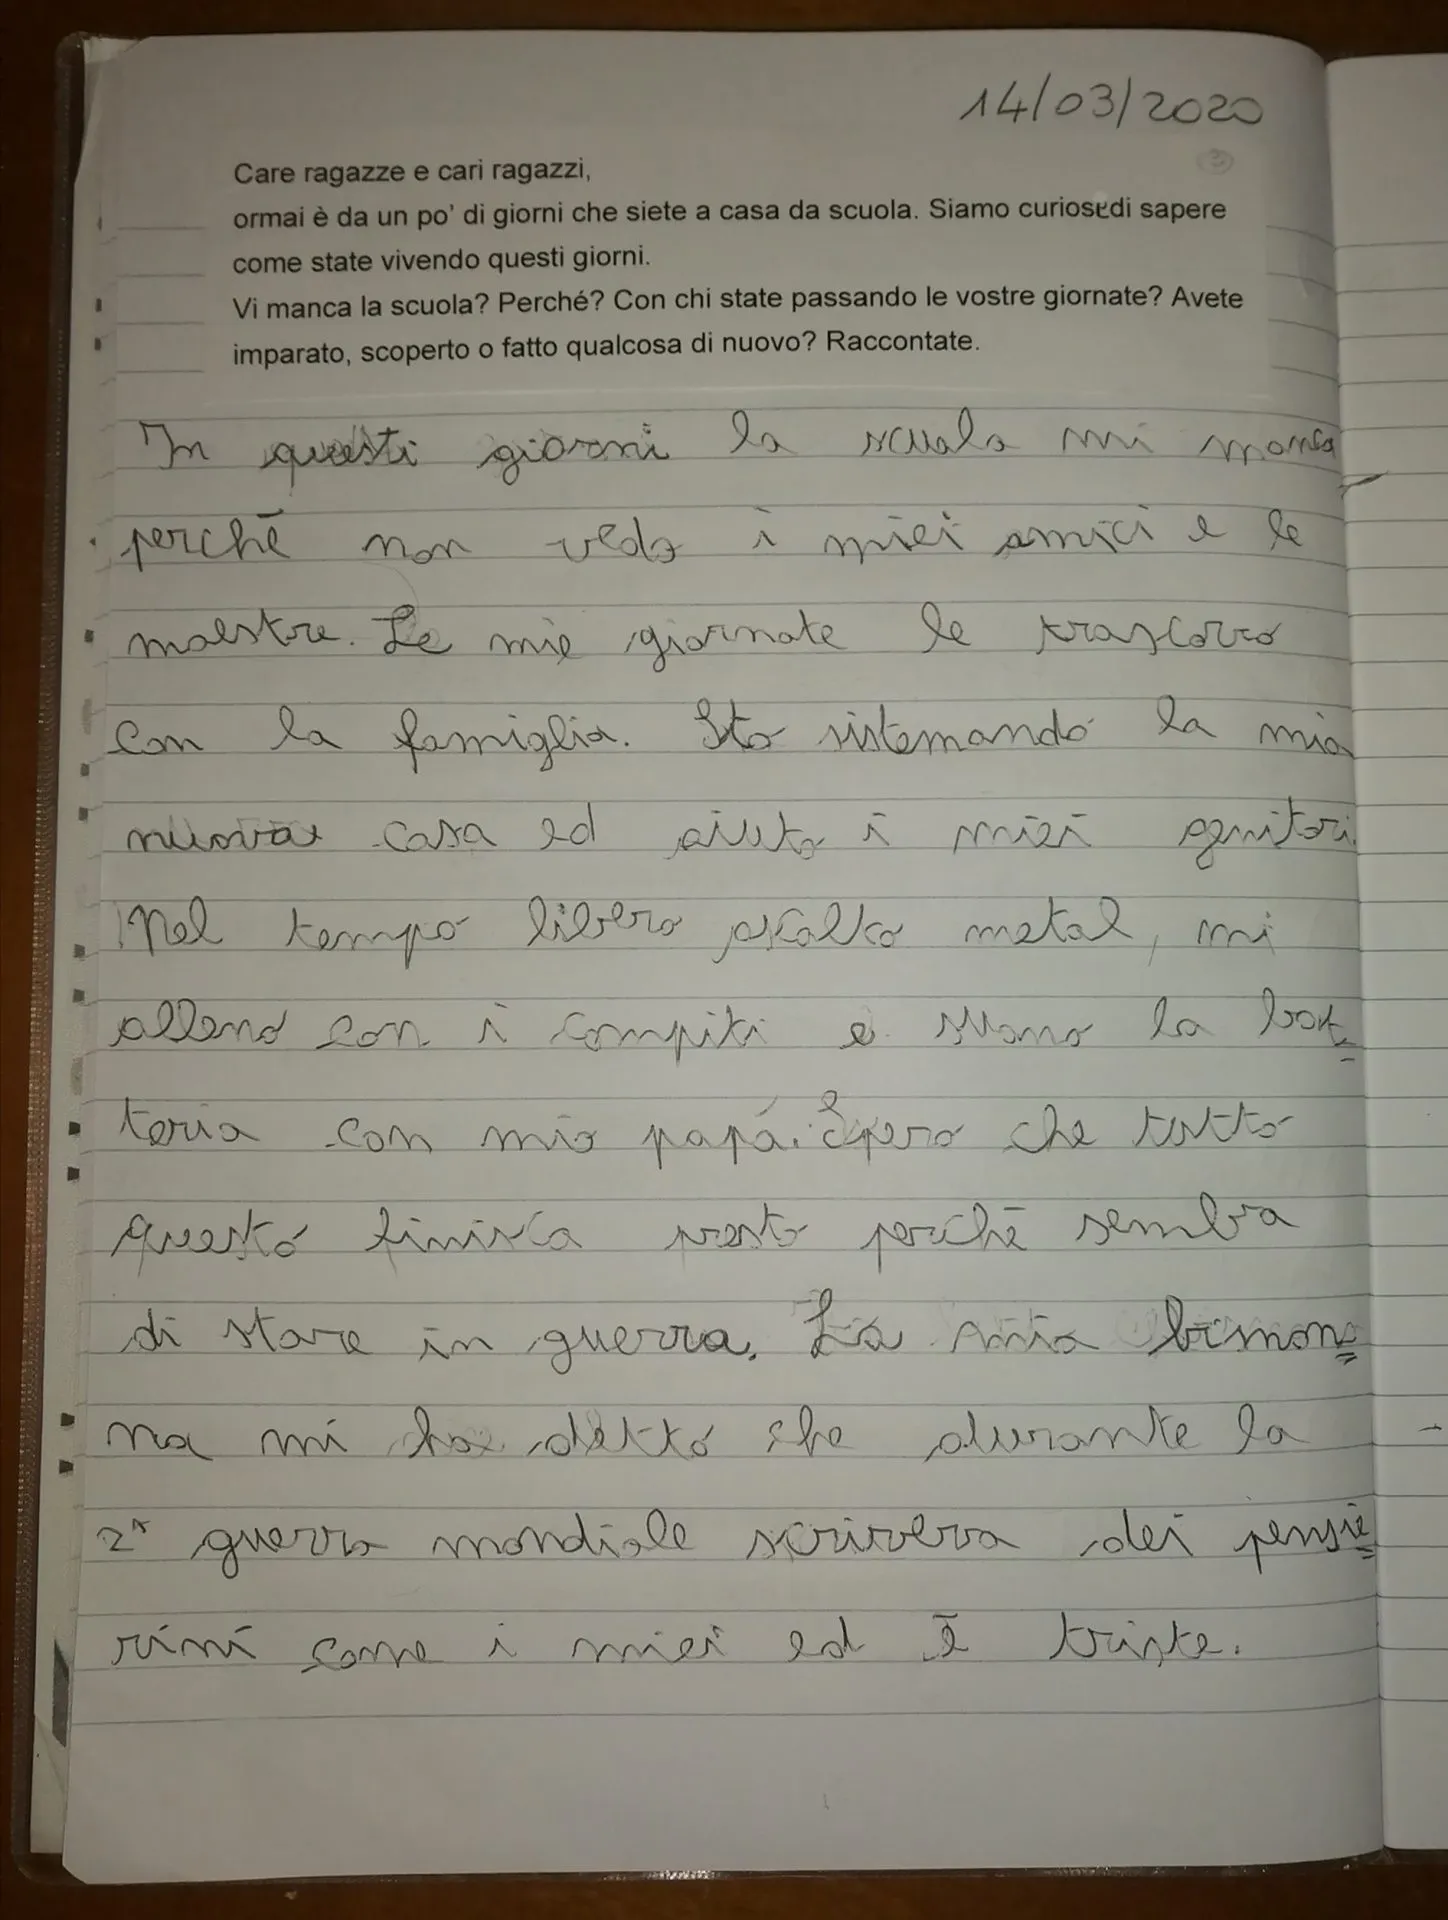 14/03/2020
Care ragazze e cari ragazzi,
ormai è da un po' di giorni che siete a casa da scuola. Siamo curiose di sapere
come state vivendo questi giorni.
Vi manca la scuola? Perché? Con chi state passando le vostre giornate? Avete
imparato, scoperto o fatto qualcosa di nuovo? Raccontate.
In questi giorni la scuola mi manca
perché non vedo i miei amici e le
maestre. Le mie giornate le trascorro
con la famiglia. Sto sistemando la mia
nuova casa ed aiuto i miei genitori.
Nel tempo libero ascolto metal, mi
alleno con i compiti e suono la bat_
teria con mio papá. Spero che tutto
questo finisca presto perché sembra
di stare in guerra. La mia bisnon=
na mi ha detto che durante la
2ª guerra mondiale scriveva dei pensie=
rini come i miei ed è triste.